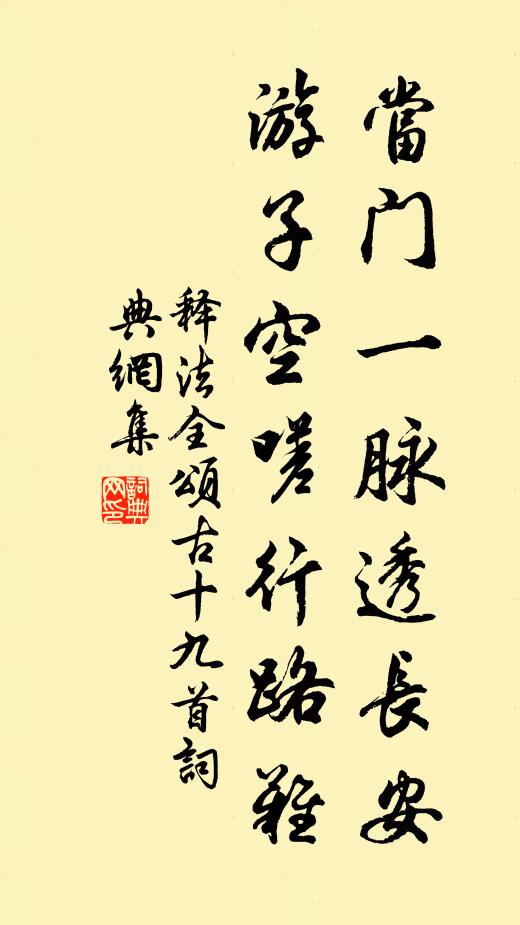 當门一脉透長安
游子空嗟行路難
释法全頌古十九首詞
典網集
詞典
网印